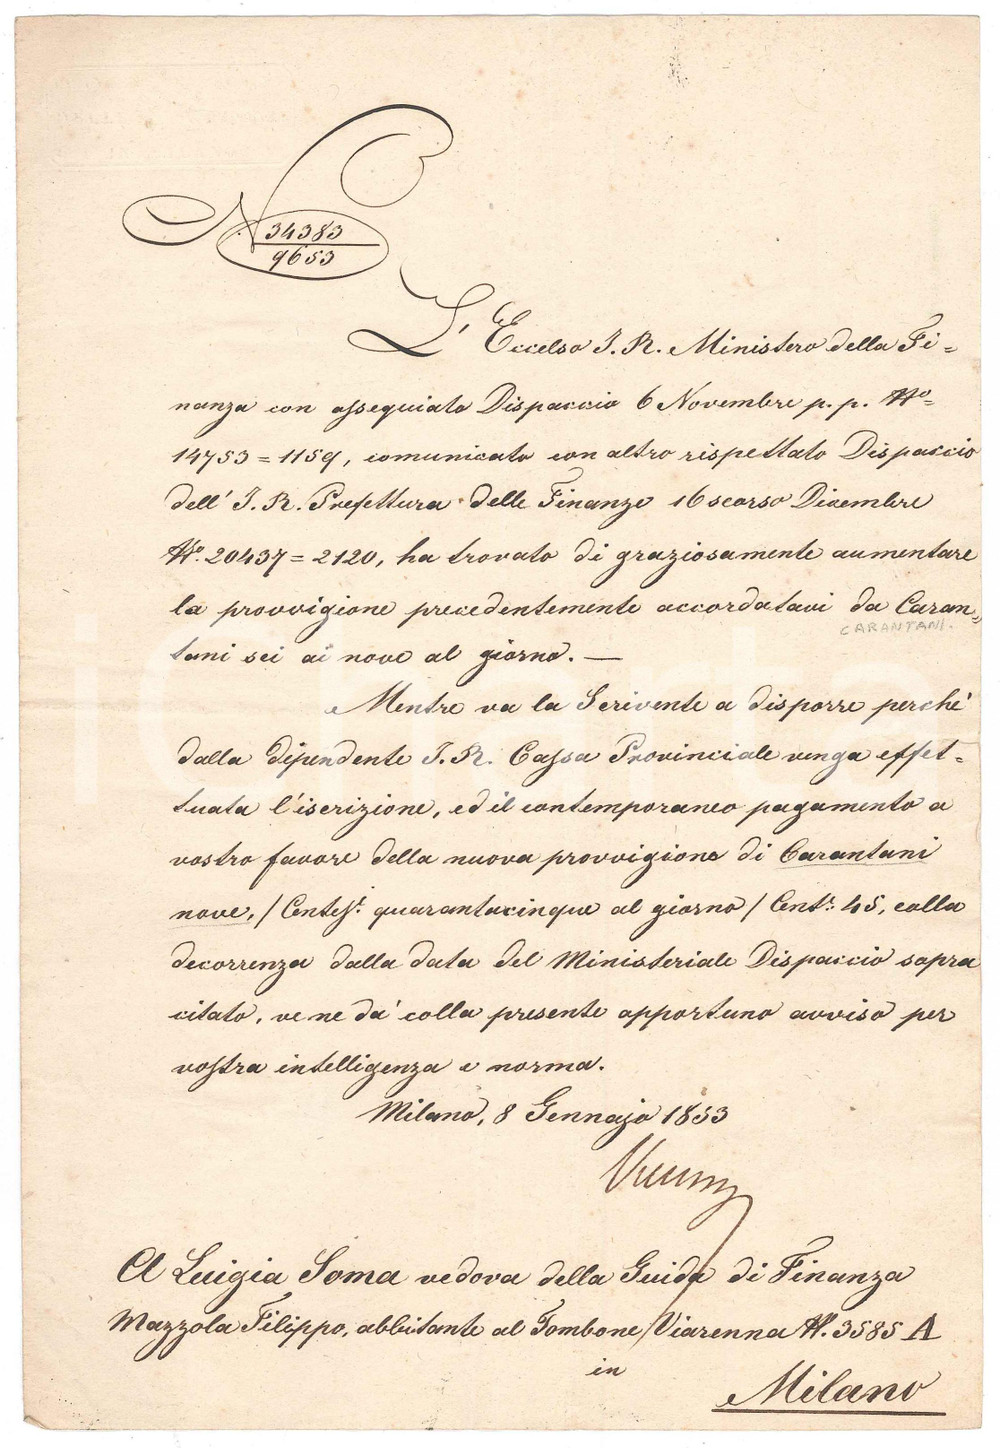 N. 34383
9653
L' Eccelso I. R. Ministero della Fi=
nanza con assequiato Dispaccio 6 Novembre p. p. N.o
14753=1159, comunicato con altro rispettato Dispaccio
dell' I. R. Prefettura delle Finanze 16 scorso Dicembre
N.o 20437=2120, ha trovato di graziosamente aumentare
la provvigione precedentemente accordatavi da Caran=
CARANTANI.
tani sei ai nove al giorno. —
Mentre va la Scrivente a disporre perché
dalla dipendente I. R. Cassa Provinciale venga effet=
tuata l'iscrizione, ed il contemporaneo pagamento a
vostro favore della nuova provvigione di Carantani
nove, / Centess.i quarantacinque al giorno / Cent.i 45, colla
decorrenza dalla data del Ministeriale Dispaccio sopra
citato, ve ne dà colla presente opportuno avviso per
vostra intelligenza e norma.
Milano, 8 Gennajo 1853
A Luigia Soma vedova della Guida di Finanza
Mazzola Filippo, abbitante al Tombone Viarenna N. 3585 A
in
Milano